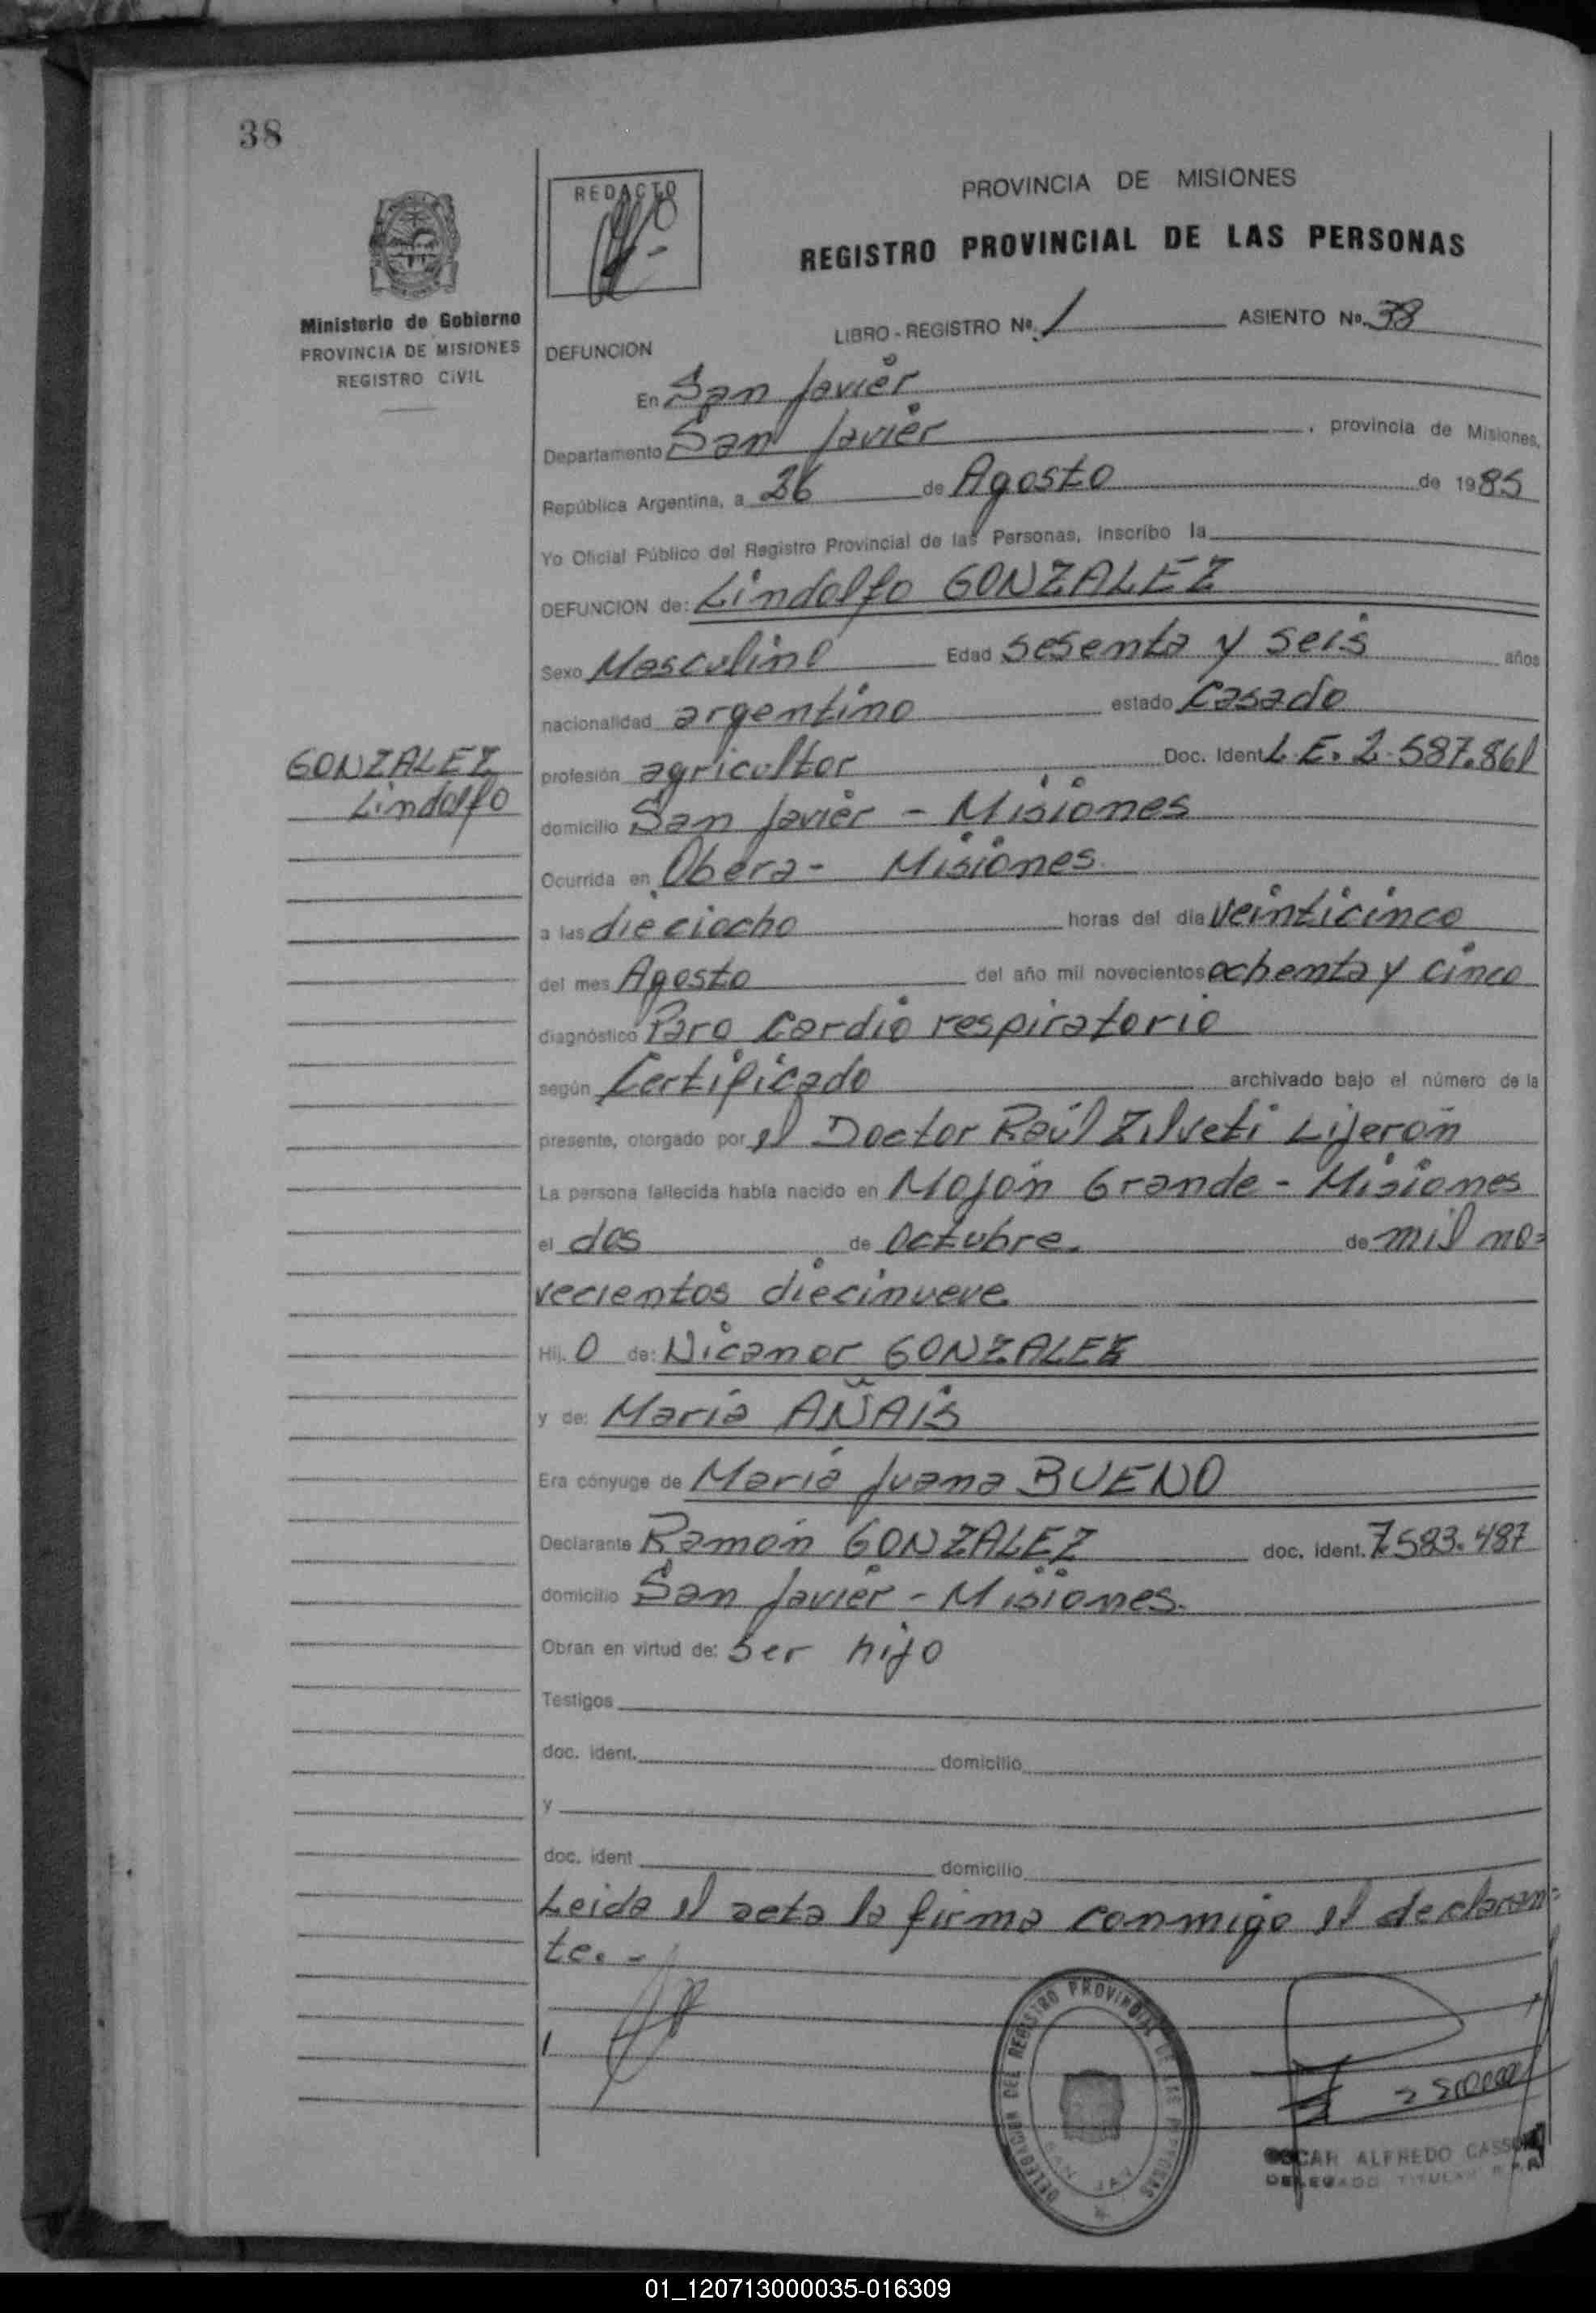 38
REDACTO
PROVINCIA DE MISIONES
REGISTRO PROVINCIAL DE LAS PERSONAS
Ministerio de Gobierno
PROVINCIA DE MISIONES
REGISTRO CIVIL
LIBRO - REGISTRO Nº 1 ASIENTO Nº 38
DEFUNCION
En San Javier
Departamento San Javier, provincia de Misiones,
República Argentina, a 26 de Agosto de 1985
Yo Oficial Público del Registro Provincial de las Personas, inscribo la
DEFUNCION de: Lindolfo GONZALEZ
Sexo Masculino Edad sesenta y seis años
nacionalidad argentino estado Casado
GONZALEZ
Lindolfo
profesión agricultor Doc. Ident L.E. 2.587.861
domicilio San Javier - Misiones
Ocurrida en Obera - Misiones
a las dieciocho horas del día veinticinco
del mes Agosto del año mil novecientos ochenta y cinco
diagnóstico Paro Cardio respiratorio
según Certificado archivado bajo el número de la
presente, otorgado por el Doctor Raúl Zilveti Lijerón
La persona fallecida había nacido en Mojón Grande - Misiones
el dos de Octubre. de mil no=
vecientos diecinueve
Hij. O de: Nicanor GONZALEZ
y de: María AÑAIS
Era cónyuge de María Juana BUENO
Declarante Ramón GONZALEZ doc. ident. 7.583.487
domicilio San Javier - Misiones.
Obran en virtud de: Ser hijo
Testigos
doc. ident. domicilio
y
doc. ident domicilio
Leida el acta la firma conmigo el declaran=
te. -
DELEGACION DEL REGISTRO PROVINCIAL DE LAS PERSONAS
SAN JAV
OSCAR ALFREDO
DELEGADO TITULAR
01_120713000035-016309